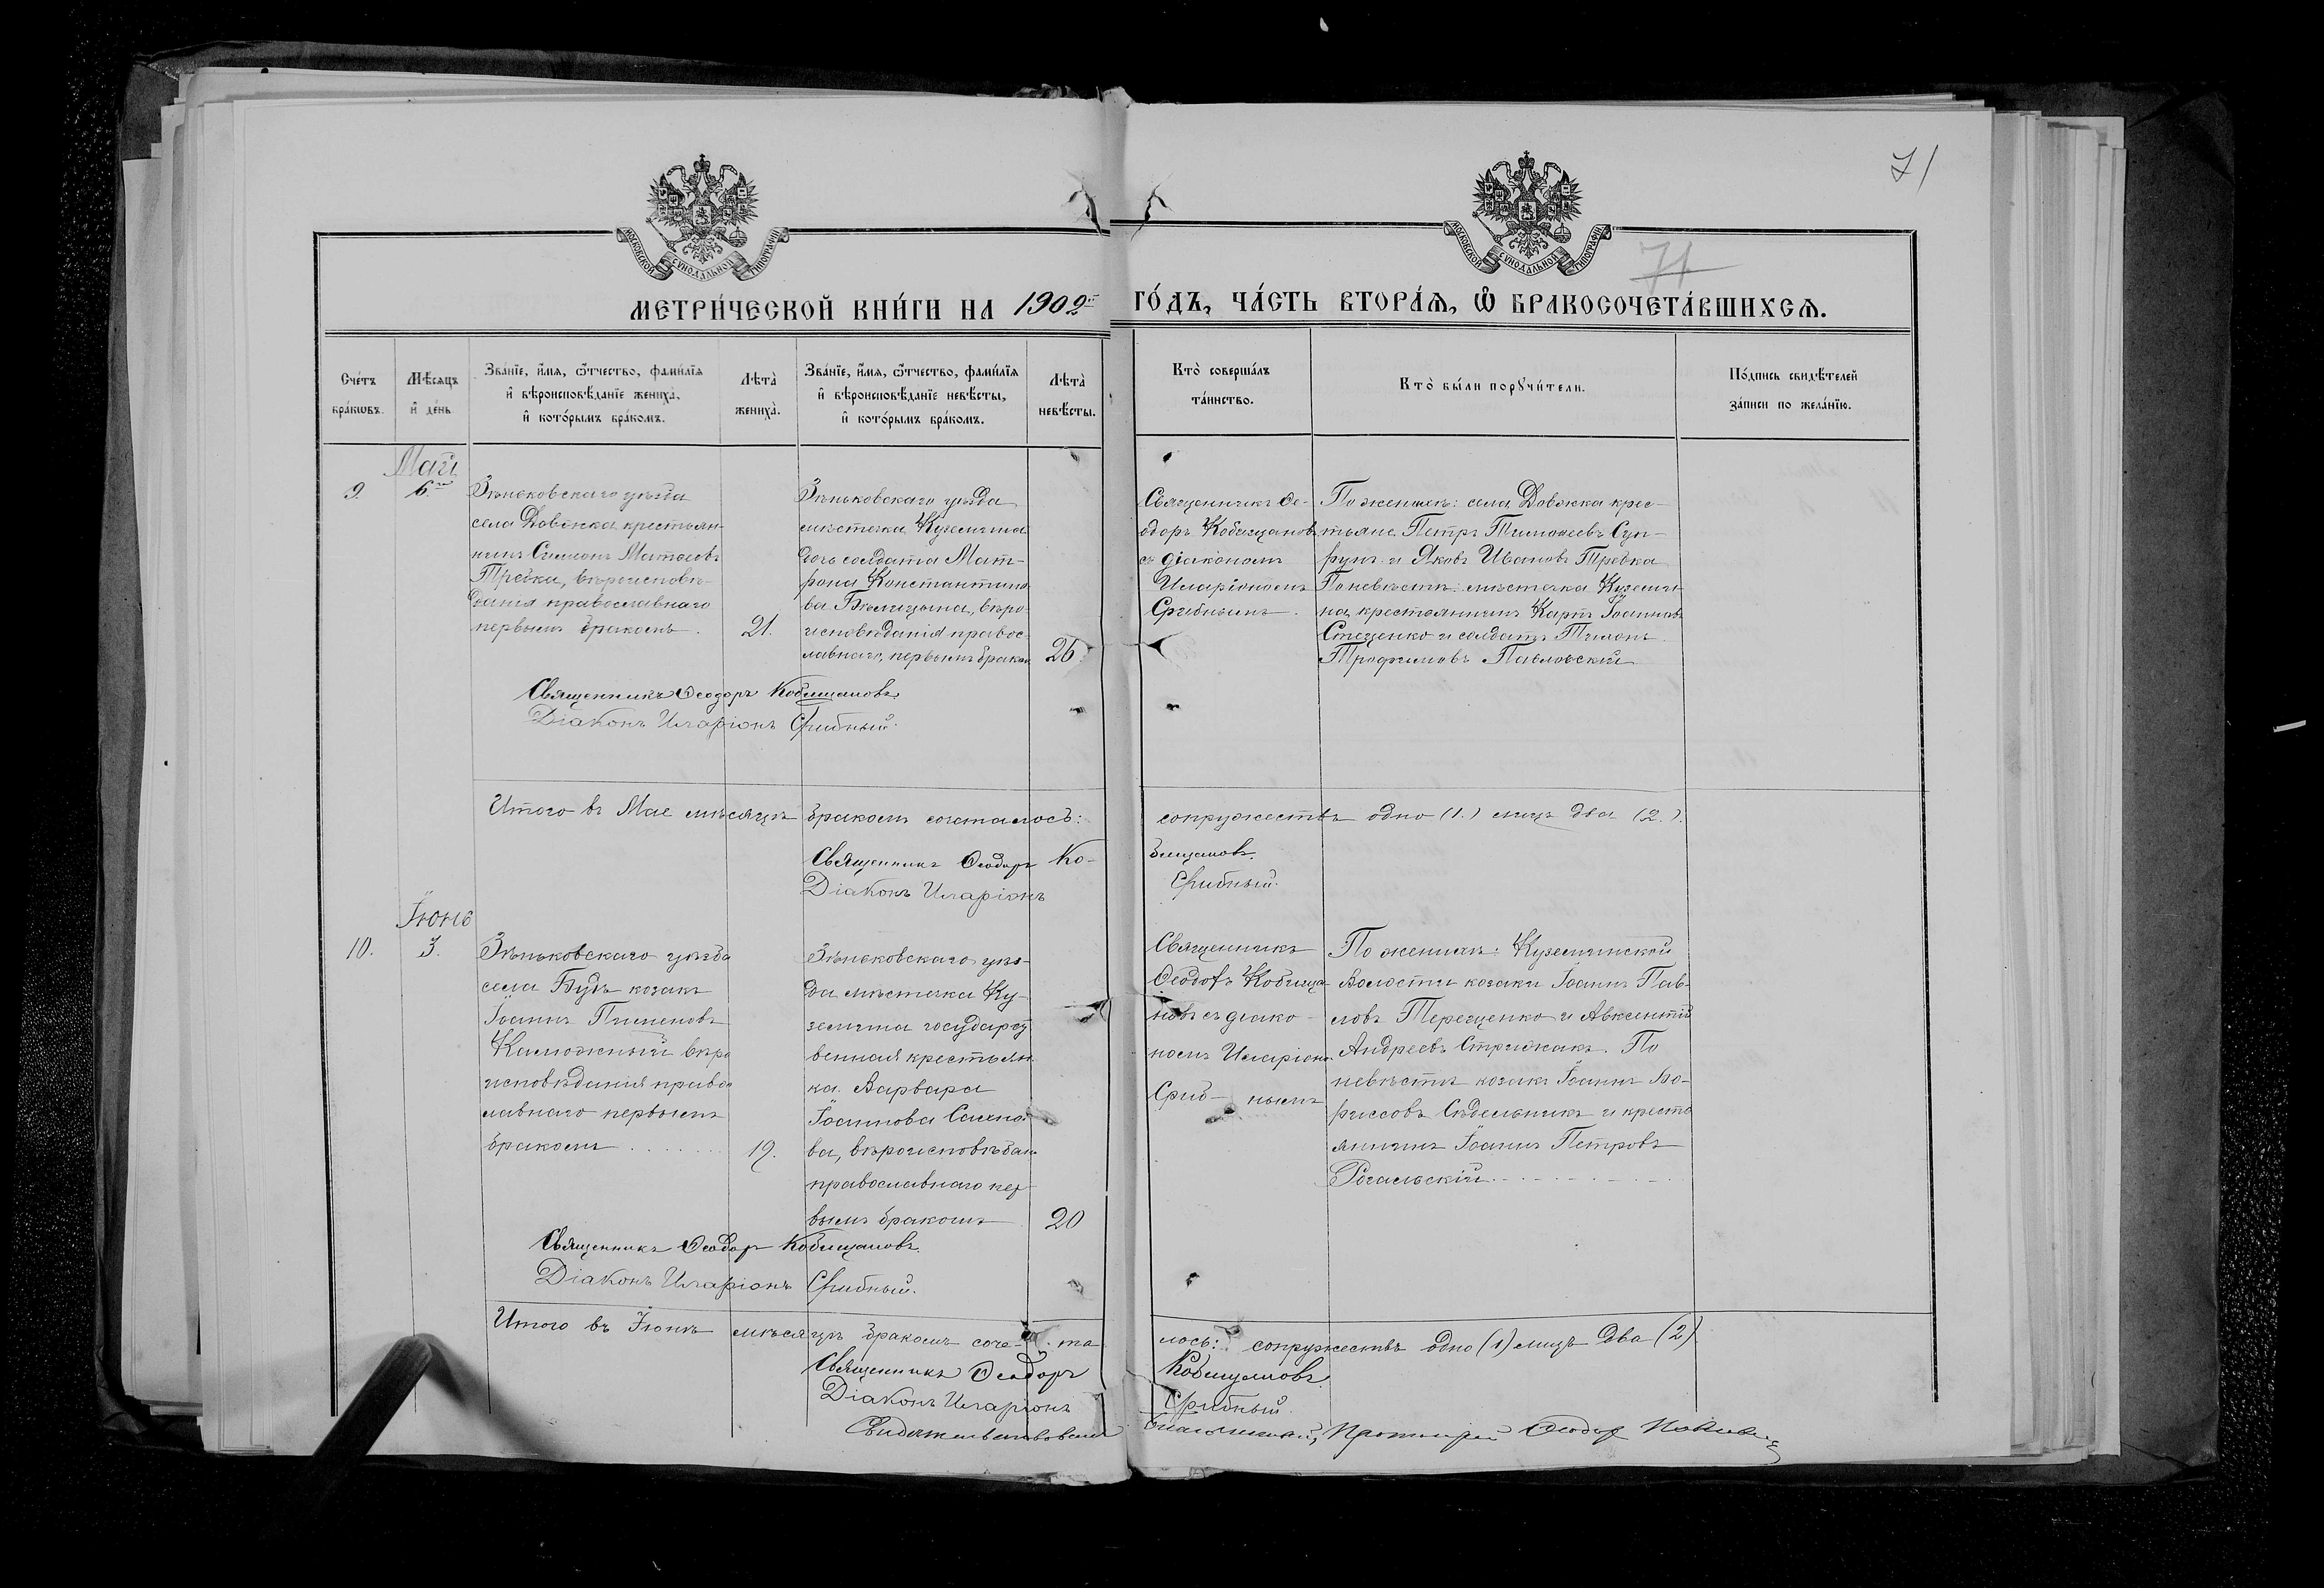 71
71
МОСКОВСКОЙ СѴНОДАЛЬНОЙ ТИПОГРАФІИ
МОСКОВСКОЙ СѴНОДАЛЬНОЙ ТИПОГРАФІИ
МЕТРИ́ЧЕСКОЙ КНИ́ГИ НА 1902й ГО́ДЪ, ЧА́СТЬ ВТОРА́Ѧ, Ѡ҆ БРАКОСОЧЕТА́ВШИХСѦ.
Сче́тъ
бра́кѡвъ.
Мѣ́сѧцъ
и҆ де́нь.
Зва́нїе, и҆́мѧ, ѻ҆́тчество, фами́лїѧ
и҆ вѣроисповѣ́данїе жениха̀,
и҆ кото́рымъ бра́комъ.
Лѣта̀
жениха̀.
Зва́нїе, и҆́мѧ, ѻ҆́тчество, фами́лїѧ
и҆ вѣроисповѣ́данїе невѣ́сты,
и҆ кото́рымъ бра́комъ.
Лѣта̀
невѣ́сты.
Кто̀ соверша́лъ
та́инство.
Кто̀ бы́ли порꙋчи́тели.
По́дпись свидѣ́телей
за́писи по жела́нїю.
Май
9.
6.го
Зѣньковскаго уѣзда
села Довжка крестьян-
нинъ Симонъ Матвеевъ
Тревка, вѣроисповѣ-
данія православнаго
первымъ бракомъ.
21.
Зѣньковскаго уѣзда
мѣстечка Куземина
дочь солдата Мат-
рона Константино-
ва Бѣлицына, вѣро-
исповѣданія правос-
лавнаго, первымъ браком
26.
Священникъ Ѳе-
одоръ Кобищановъ
съ діакономъ
Иларіономъ
Срибнымъ.
По женихѣ: села Довжка крес-
тьяне Петръ Тимоѳеевъ Суп-
рунъ и Яковъ Ивановъ Тревка
По невѣстѣ: мѣстечка Куземи-
на крестьянинъ Карпъ Іоанновъ
Стеценко и солдатъ
Трофимовъ Павловскій
Священникъ Ѳеодоръ Кобищановъ.
Діаконъ Иларіонъ Срибный.
Итого въ Мае мѣсяцѣ бракомъ сочеталось: сопружествъ одно (1.) лицъ два (2.).
Священникъ Ѳеодоръ Кобищановъ.
Діаконъ Иларіонъ Срибный.
Іюнь
10.
3.
Зѣньковскаго уѣзда
села Будъ козакъ
Іоаннъ Пименовъ
Калюжный вѣро
исповѣданія правос
лавнаго первымъ
бракомъ . . . . . .
19.
Зѣньковскаго уѣз-
да мѣстечка Ку-
земина государст
венная крестьян-
ка Варвара
Іоаннова
ва, вѣроисповѣдан
православнаго пер
вымъ бракомъ
20
Священникъ
Ѳеодоръ Кобища-
новъ съ діако-
номъ Иларіоно
Сриб- нымъ
По женихѣ: Куземинской
Волости козаки Іоаннъ Пав-
ловъ Терещенко и Авксентій
Андреевъ Стрижакъ. По
невѣстѣ козакъ Іоаннъ Бо-
рисовъ Сѣдельникъ и кресть
янинъ Іоаннъ Петровъ
Рогальскій . . . . . .
Священникъ Ѳеодоръ Кобищановъ.
Діаконъ Иларіонъ Срибный.
Итого въ Іюнѣ мѣсяцѣ бракомъ сочета лось: сопружествъ одно (1) лицъ два (2)
Священникъ Ѳеодоръ Кобищановъ.
Діаконъ Иларіонъ Срибный.
Благочинный, Протоіерей Ѳеодоръ